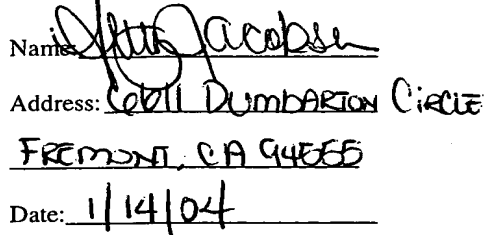 Name: Jacobsen
Address: 6611 DUMBARTON CIRCLE
FREMONT, CA 94555
Date: 1/14/04